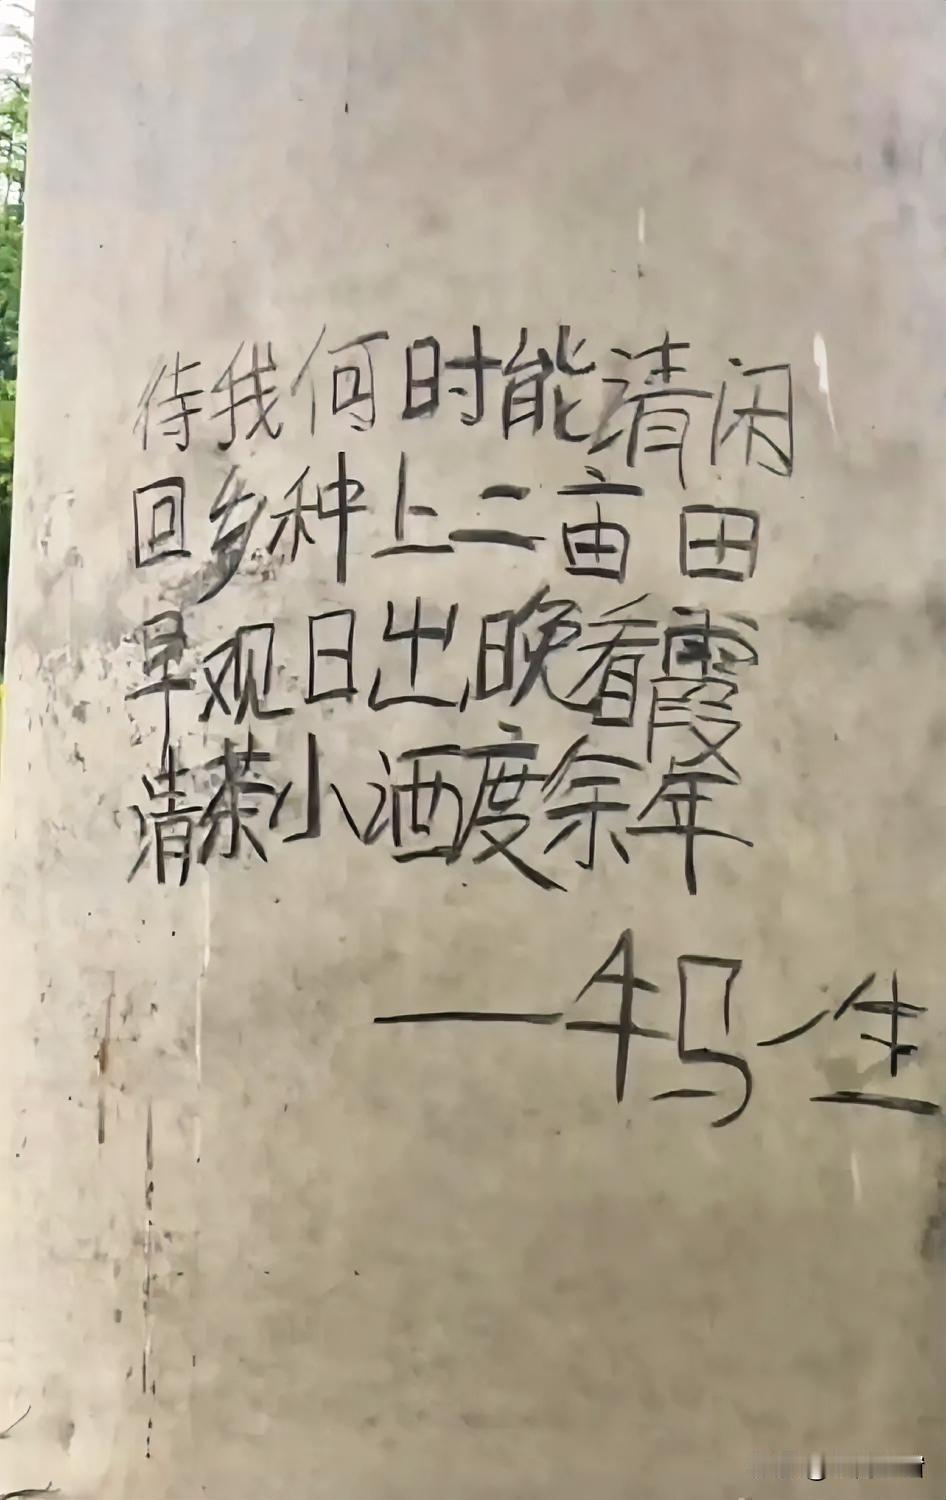 待我何时能清闲
回乡种上二亩田
早观日出晚看霞
清茶小酒度余年
——牛马一生